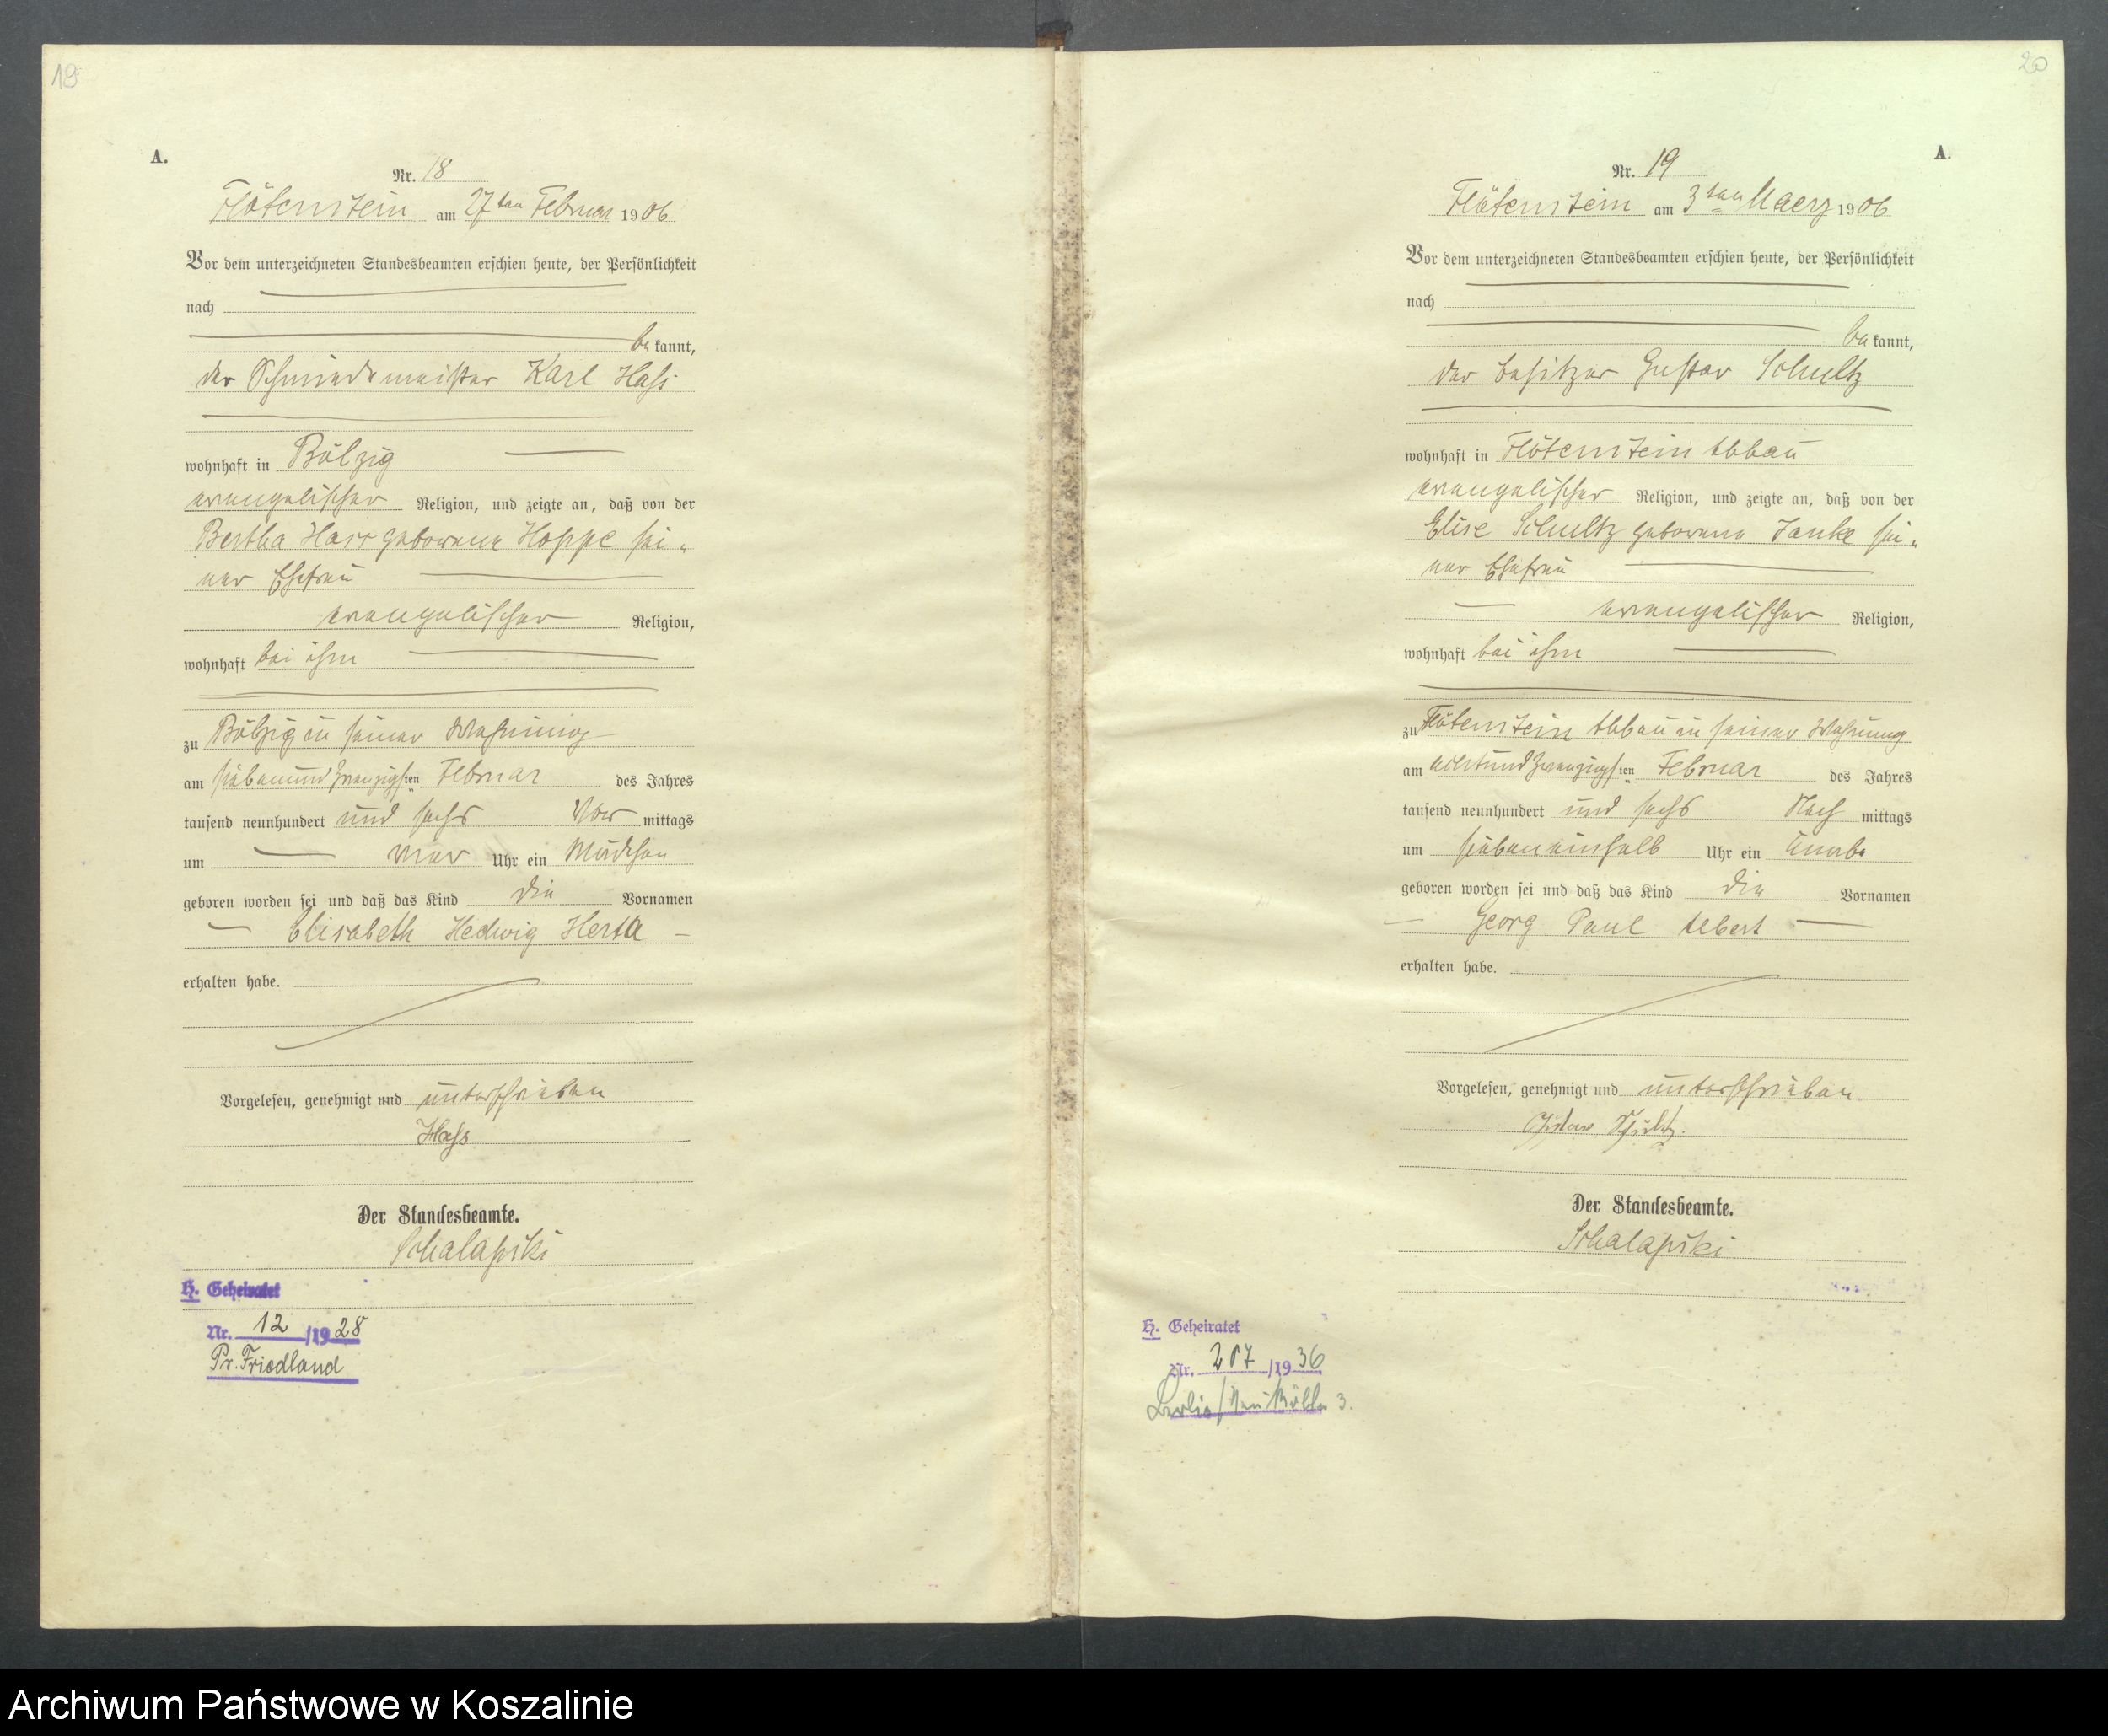 19
A.
Nr. 18
Flötenstein am 27ten Februar 1906
Vor dem unterzeichneten Standesbeamten erschien heute, der Persönlichkeit
nach
bekannt,
der Schmiedemeister Karl Hass
wohnhaft in Bölzig
evangelischer Religion, und zeigte an, daß von der
Bertha Hass geborene Hoppe sei-
ner Ehefrau
evangelischer Religion,
wohnhaft bei ihm
zu Bölzig in seiner Wohnung
am siebenundzwanzigsten Februar des Jahres
tausend neunhundert und sechs Vor mittags
um vier Uhr ein Mädchen
geboren worden sei und daß das Kind die Vornamen
Elisabeth Hedwig Herta
erhalten habe.
Vorgelesen, genehmigt und unterschrieben
Hass
Der Standesbeamte.
Schalapski
H. Geheiratet
Nr. 12 /1928
Pr. Friedland
20
A.
Nr. 19
Flötenstein am 3ten Maerz 1906
Vor dem unterzeichneten Standesbeamten erschien heute, der Persönlichkeit
nach
bekannt,
der Besitzer Gustav Schultz
wohnhaft in Flötenstein Abbau
evangelischer Religion, und zeigte an, daß von der
Elise Schultz geborene Janke sei-
ner Ehefrau
evangelischer Religion,
wohnhaft bei ihm
zu Flötenstein Abbau in seiner Wohnung
am achtundzwanzigsten Februar des Jahres
tausend neunhundert und sechs Nach mittags
um siebeneinhalb Uhr ein Knabe
geboren worden sei und daß das Kind die Vornamen
Georg Paul Albert
erhalten habe.
Vorgelesen, genehmigt und unterschrieben.
Gustav Schultz.
Der Standesbeamte.
Schalapski
H. Geheiratet
Nr. 207 /1936
Berlin/Neukölln 3.
Archiwum Państwowe w Koszalinie